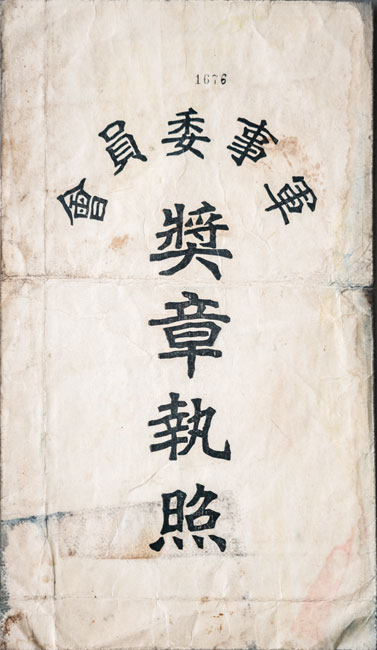 1676
軍事委員會
獎章執照